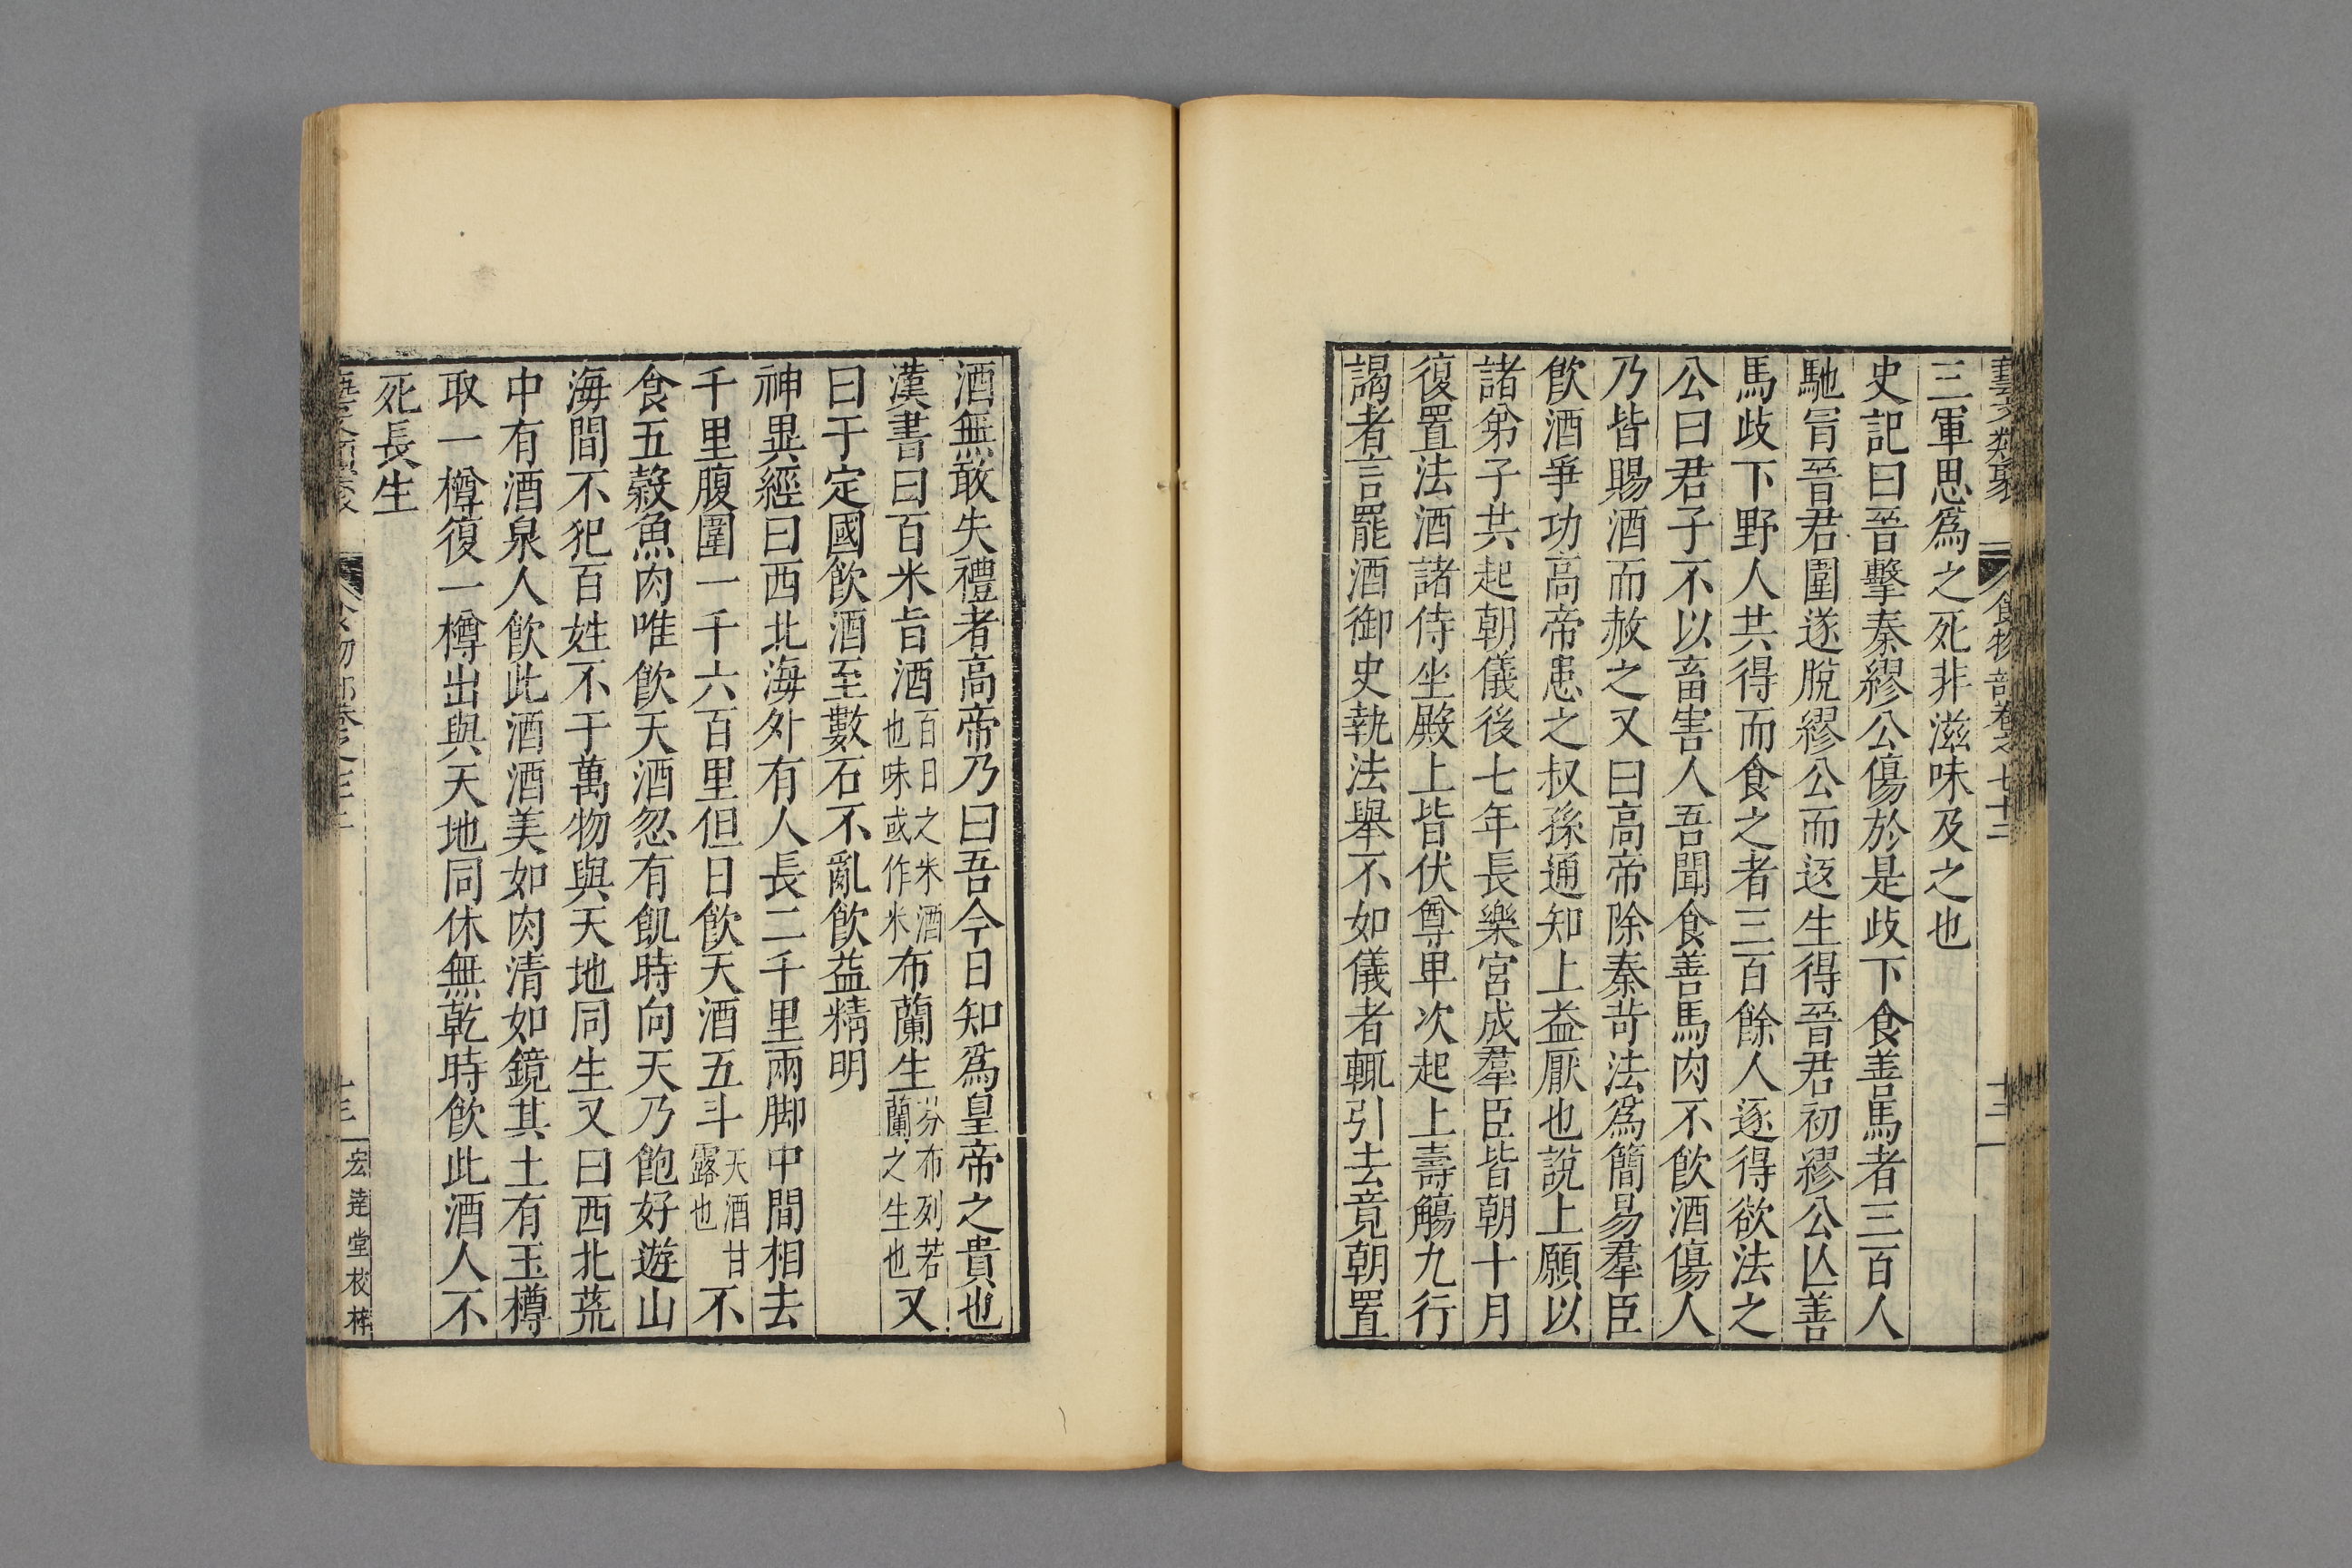 藝文類聚 食物部卷之七十二 十三
三軍思爲之死非滋味及之也
史記曰晉擊秦繆公傷於是歧下食善馬者三百人
馳冐晉君圍遂脫繆公而返生得晉君初繆公亾善
馬歧下野人共得而食之者三百餘人逐得欲法之
公曰君子不以畜害人吾聞食善馬肉不飲酒傷人
乃皆賜酒而赦之又曰高帝除秦苛法爲簡易羣臣
飲酒爭功高帝患之叔孫通知上益厭也說上願以
諸弟子共起朝儀後七年長樂宮成羣臣皆朝十月
復置法酒諸侍坐殿上皆伏尊卑次起上壽觴九行
謁者言罷酒御史執法舉不如儀者輒引去竟朝置
酒無敢失禮者高帝乃曰吾今日知爲皇帝之貴也
漢書曰百米旨酒百日之米酒也味或作米布蘭生芬布列若蘭之生也又
曰于定國飲酒至數石不亂飲益精明
神異經曰西北海外有人長二千里兩脚中間相去
千里腹圍一千六百里但日飲天酒五斗天酒甘露也不
食五穀魚肉唯飲天酒忽有飢時向天乃飽好遊山
海間不犯百姓不于萬物與天地同生又曰西北荒
中有酒泉人飲此酒酒美如肉清如鏡其土有玉樽
取一樽復一樽出與天地同休無乾時飲此酒人不
死長生
宏逹堂校梓